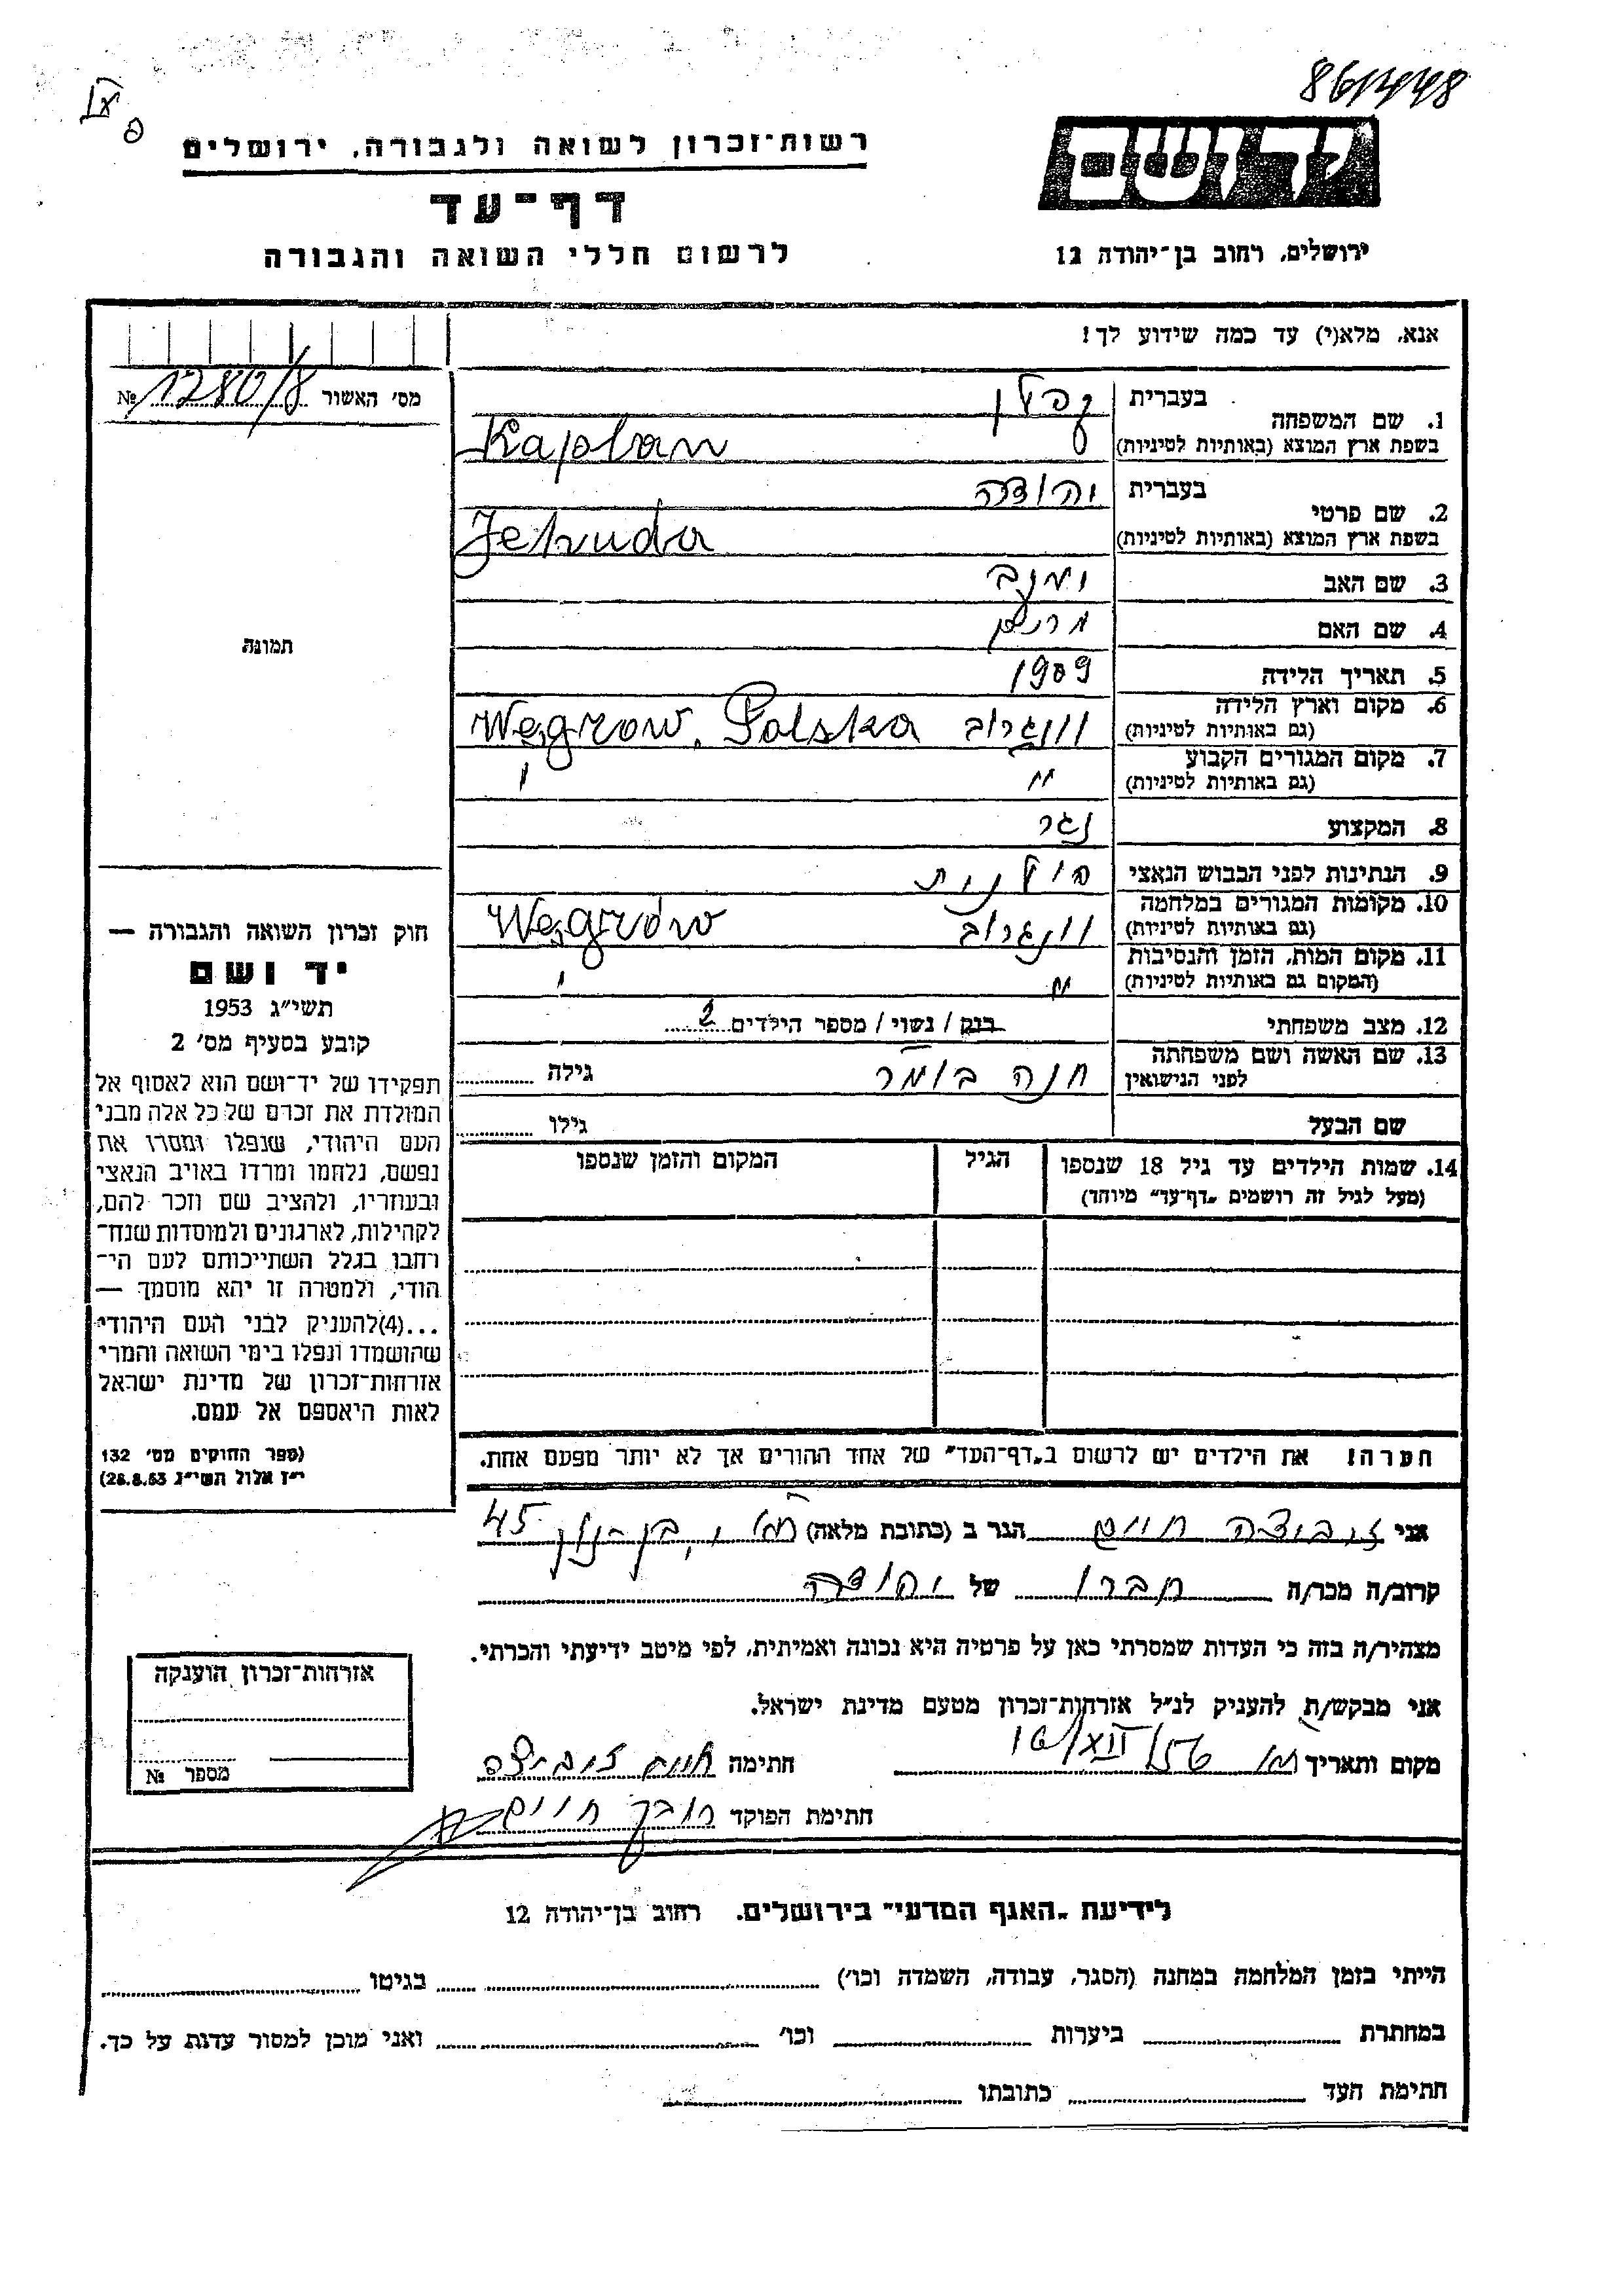 861448
רשות־זכרון לשואה ולגבורה, ירושלים
יד ושם
דף־עד
לרשום חללי השואה והגבורה
ירושלים, רחוב בן־יהודה 12
אנא, מלא(י) עד כמה שידוע לך!
מס' האשור № 1280/8
1. שם המשפחה
בעברית קפלן
בשפת ארץ המוצא (באותיות לטיניות) Kaplan
2. שם פרטי
בעברית יהודה
בשפת ארץ המוצא (באותיות לטיניות) Jehuda
3. שם האב
4. שם האם מרים
5. תאריך הלידה 1909
6. מקום וארץ הלידה
(גם באותיות לטיניות) וונגרוב Węgrow, Polska
7. מקום המגורים הקבוע
(גם באותיות לטיניות) " "
8. המקצוע נגר
9. הנתינות לפני הכבוש הנאצי פולנית
10. מקומות המגורים במלחמה
(גם באותיות לטיניות) וונגרוב Węgrów
11. מקום המות, הזמן והנסיבות
(המקום גם באותיות לטיניות) " "
12. מצב משפחתי רווק / נשוי / מספר הילדים 2
13. שם האשה ושם משפחתה
לפני הנישואין חנה גילה
שם הבעל גילו
14. שמות הילדים עד גיל 18 שנספו
(מעל לגיל זה רושמים „דף־עד" מיוחד)
הגיל
המקום והזמן שנספו
הערה! את הילדים יש לרשום ב„דף־העד" של אחד ההורים אך לא יותר מפעם אחת.
תמונה
חוק זכרון השואה והגבורה —
יד ושם
תשי"ג 1953
קובע בסעיף מס' 2
תפקידו של יד־ושם הוא לאסוף אל
המולדת את זכרם של כל אלה מבני
העם היהודי, שנפלו ומסרו את
נפשם, נלחמו ומרדו באויב הנאצי
ובעוזריו, ולהציב שם וזכר להם,
לקהילות, לארגונים ולמוסדות שנח־
רבו בגלל השתייכותם לעם הי־
הודי, ולמטרה זו יהא מוסמך —
...(4)להעניק לבני העם היהודי
שהושמדו ונפלו בימי השואה והמרי
אזרחות־זכרון של מדינת ישראל
לאות היאספם אל עמם.
(ספר החוקים מס' 132
י"ז אלול תשי"ג 28.8.53)
אני זביצה חיים הגר ב (כתובת מלאה) בן־נון 45
קרוב/ה מכר/ה חברו של יהודה
מצהיר/ה בזה כי העדות שמסרתי כאן על פרטיה היא נכונה ואמיתית, לפי מיטב ידיעתי והכרתי.
אני מבקש/ת להעניק לנ"ל אזרחות־זכרון מטעם מדינת ישראל.
מקום ותאריך 16/XII 56 חתימה חיים זביצה
חתימת הפוקד חיים
אזרחות־זכרון הוענקה
מספר №
לידיעת „האגף המדעי" בירושלים, רחוב בן־יהודה 12
הייתי בזמן המלחמה במחנה (הסגר, עבודה, השמדה וכו') בגיטו
במחתרת ביערות וכו' ואני מוכן למסור עדות על כך.
חתימת העד כתובתו